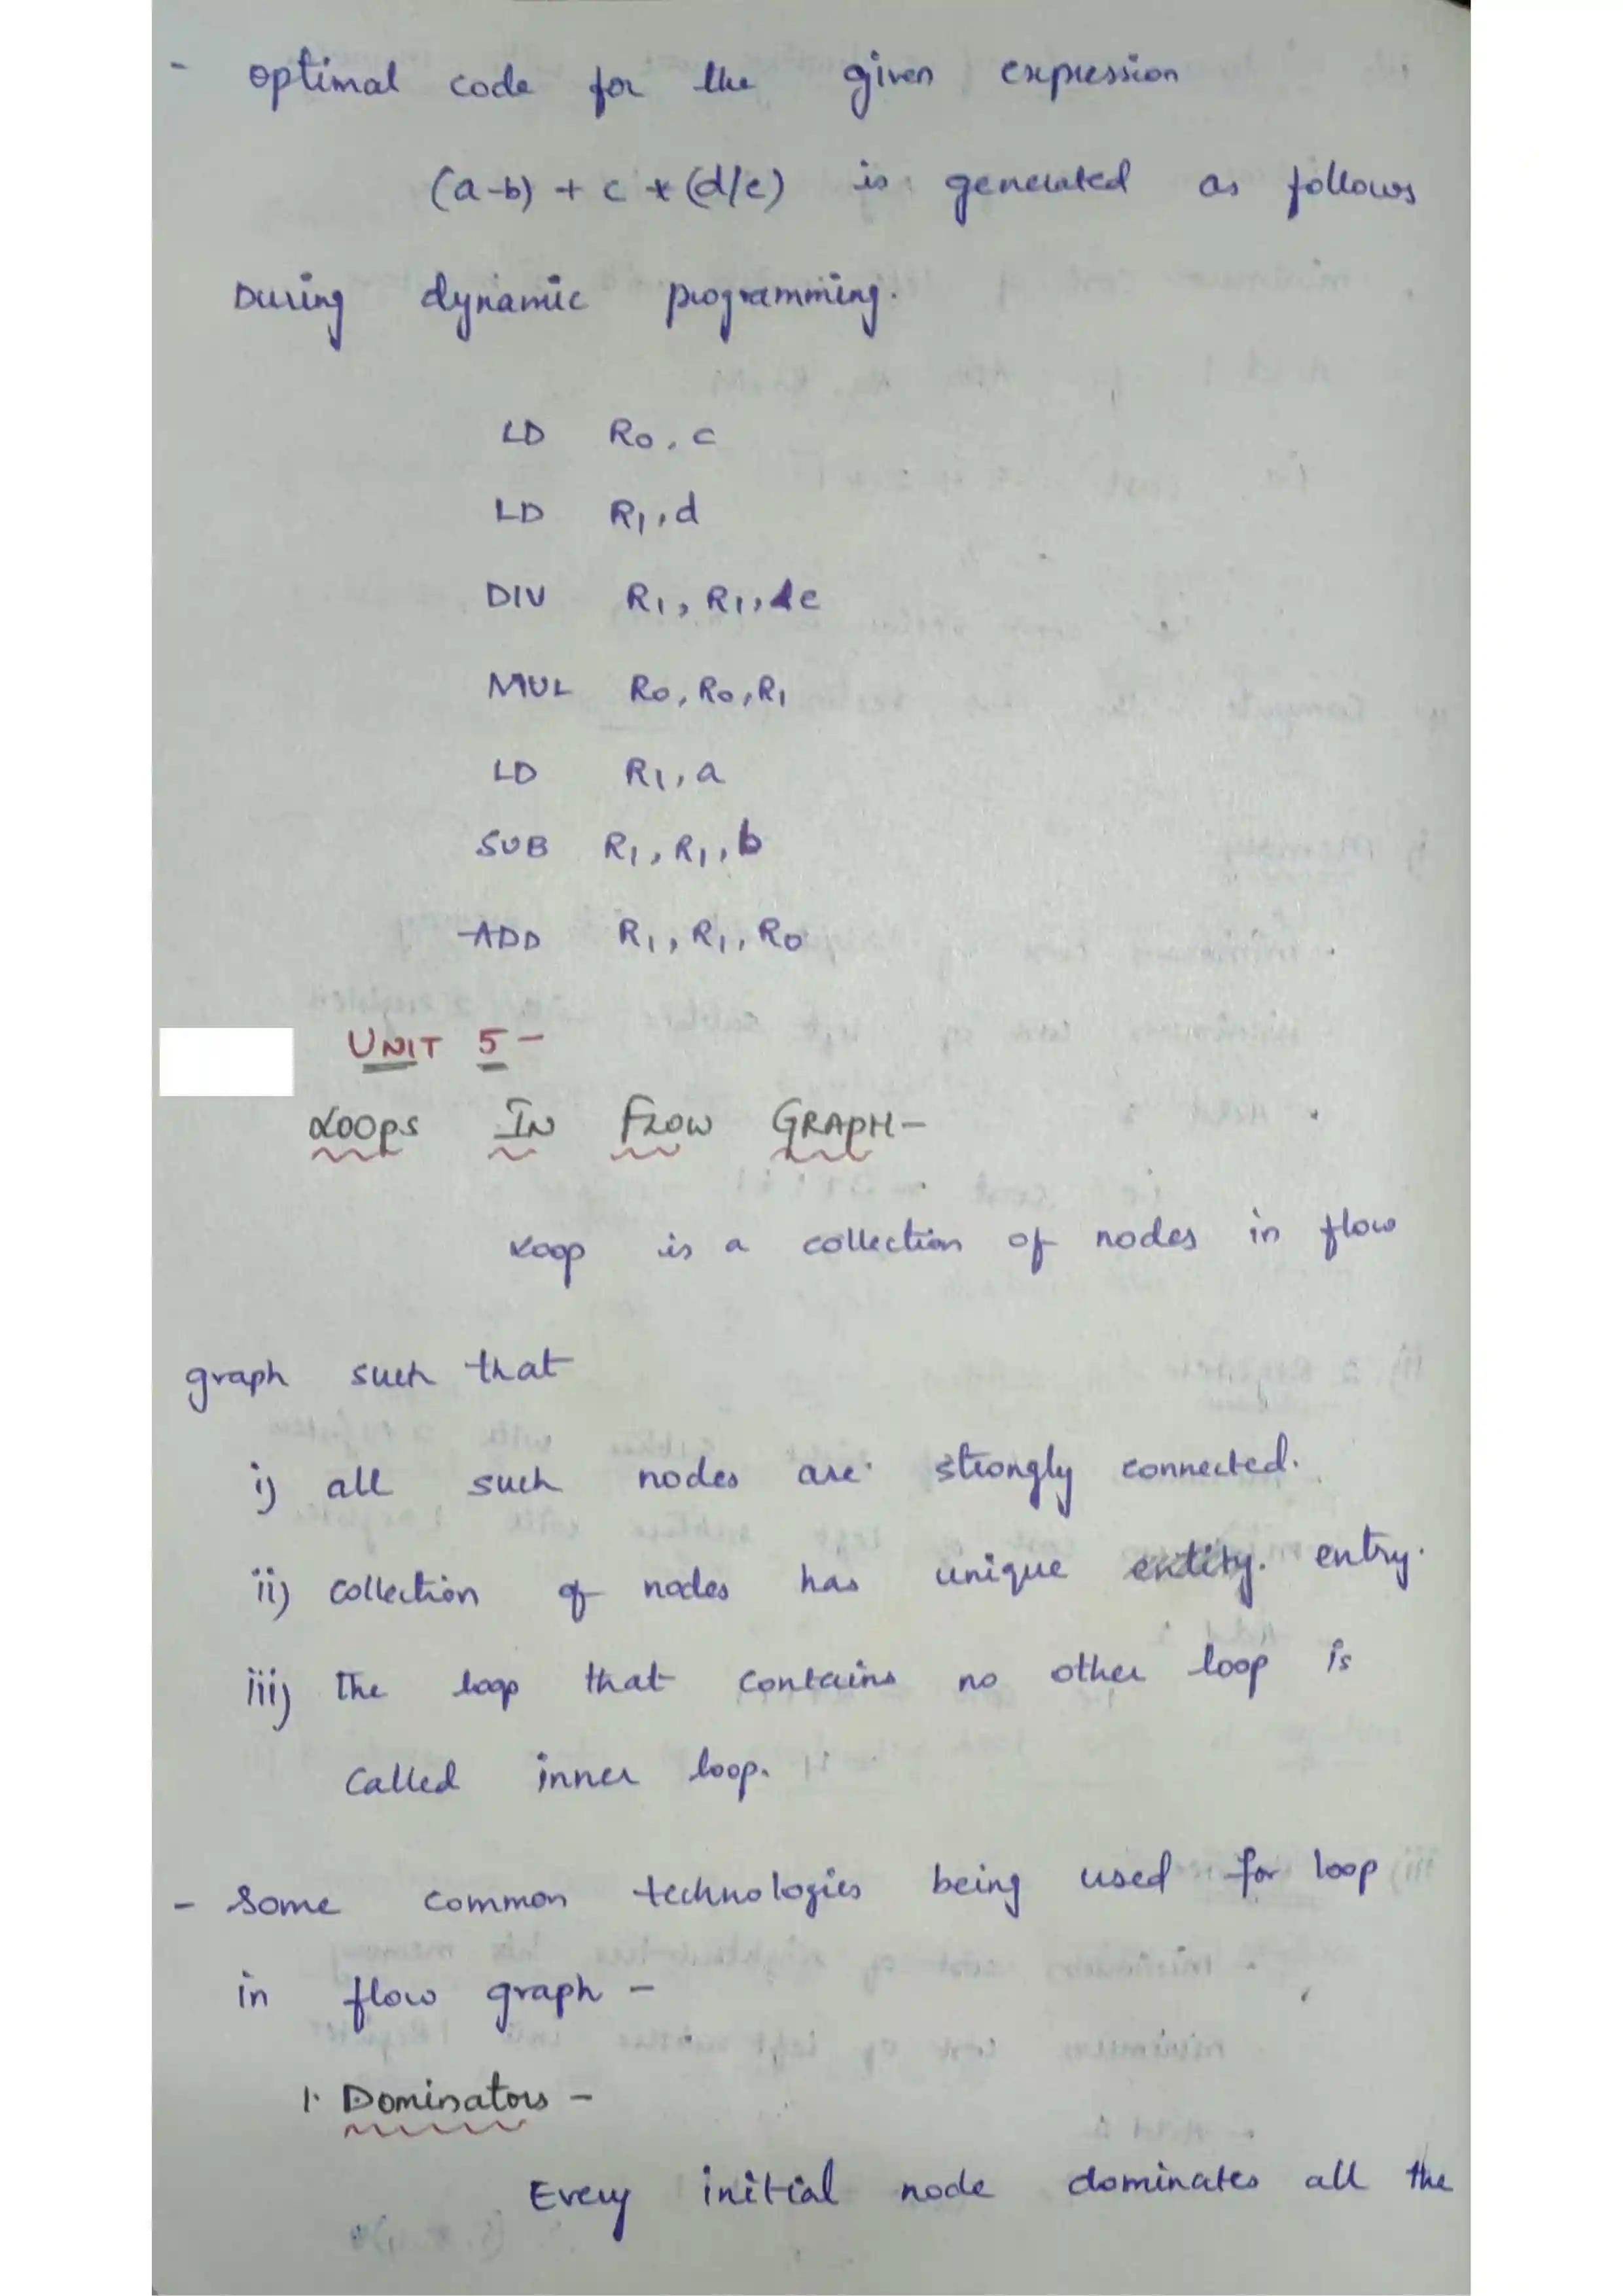 - optimal code for the given expression
(a-b) + c * (d/e) is generated as follows
During dynamic programming.
LD R0, c
LD R1, d
DIV R1, R1, e
MUL R0, R0, R1
LD R1, a
SUB R1, R1, b
ADD R1, R1, R0
UNIT 5 -
LOOPS IN FLOW GRAPH -
Loop is a collection of nodes in flow
graph such that
i) all such nodes are strongly connected.
ii) collection of nodes has unique entity. entry.
iii) The loop that contains no other loop is
called inner loop.
- Some common technologies being used for loop
in flow graph -
1. Dominators -
Every initial node dominates all the